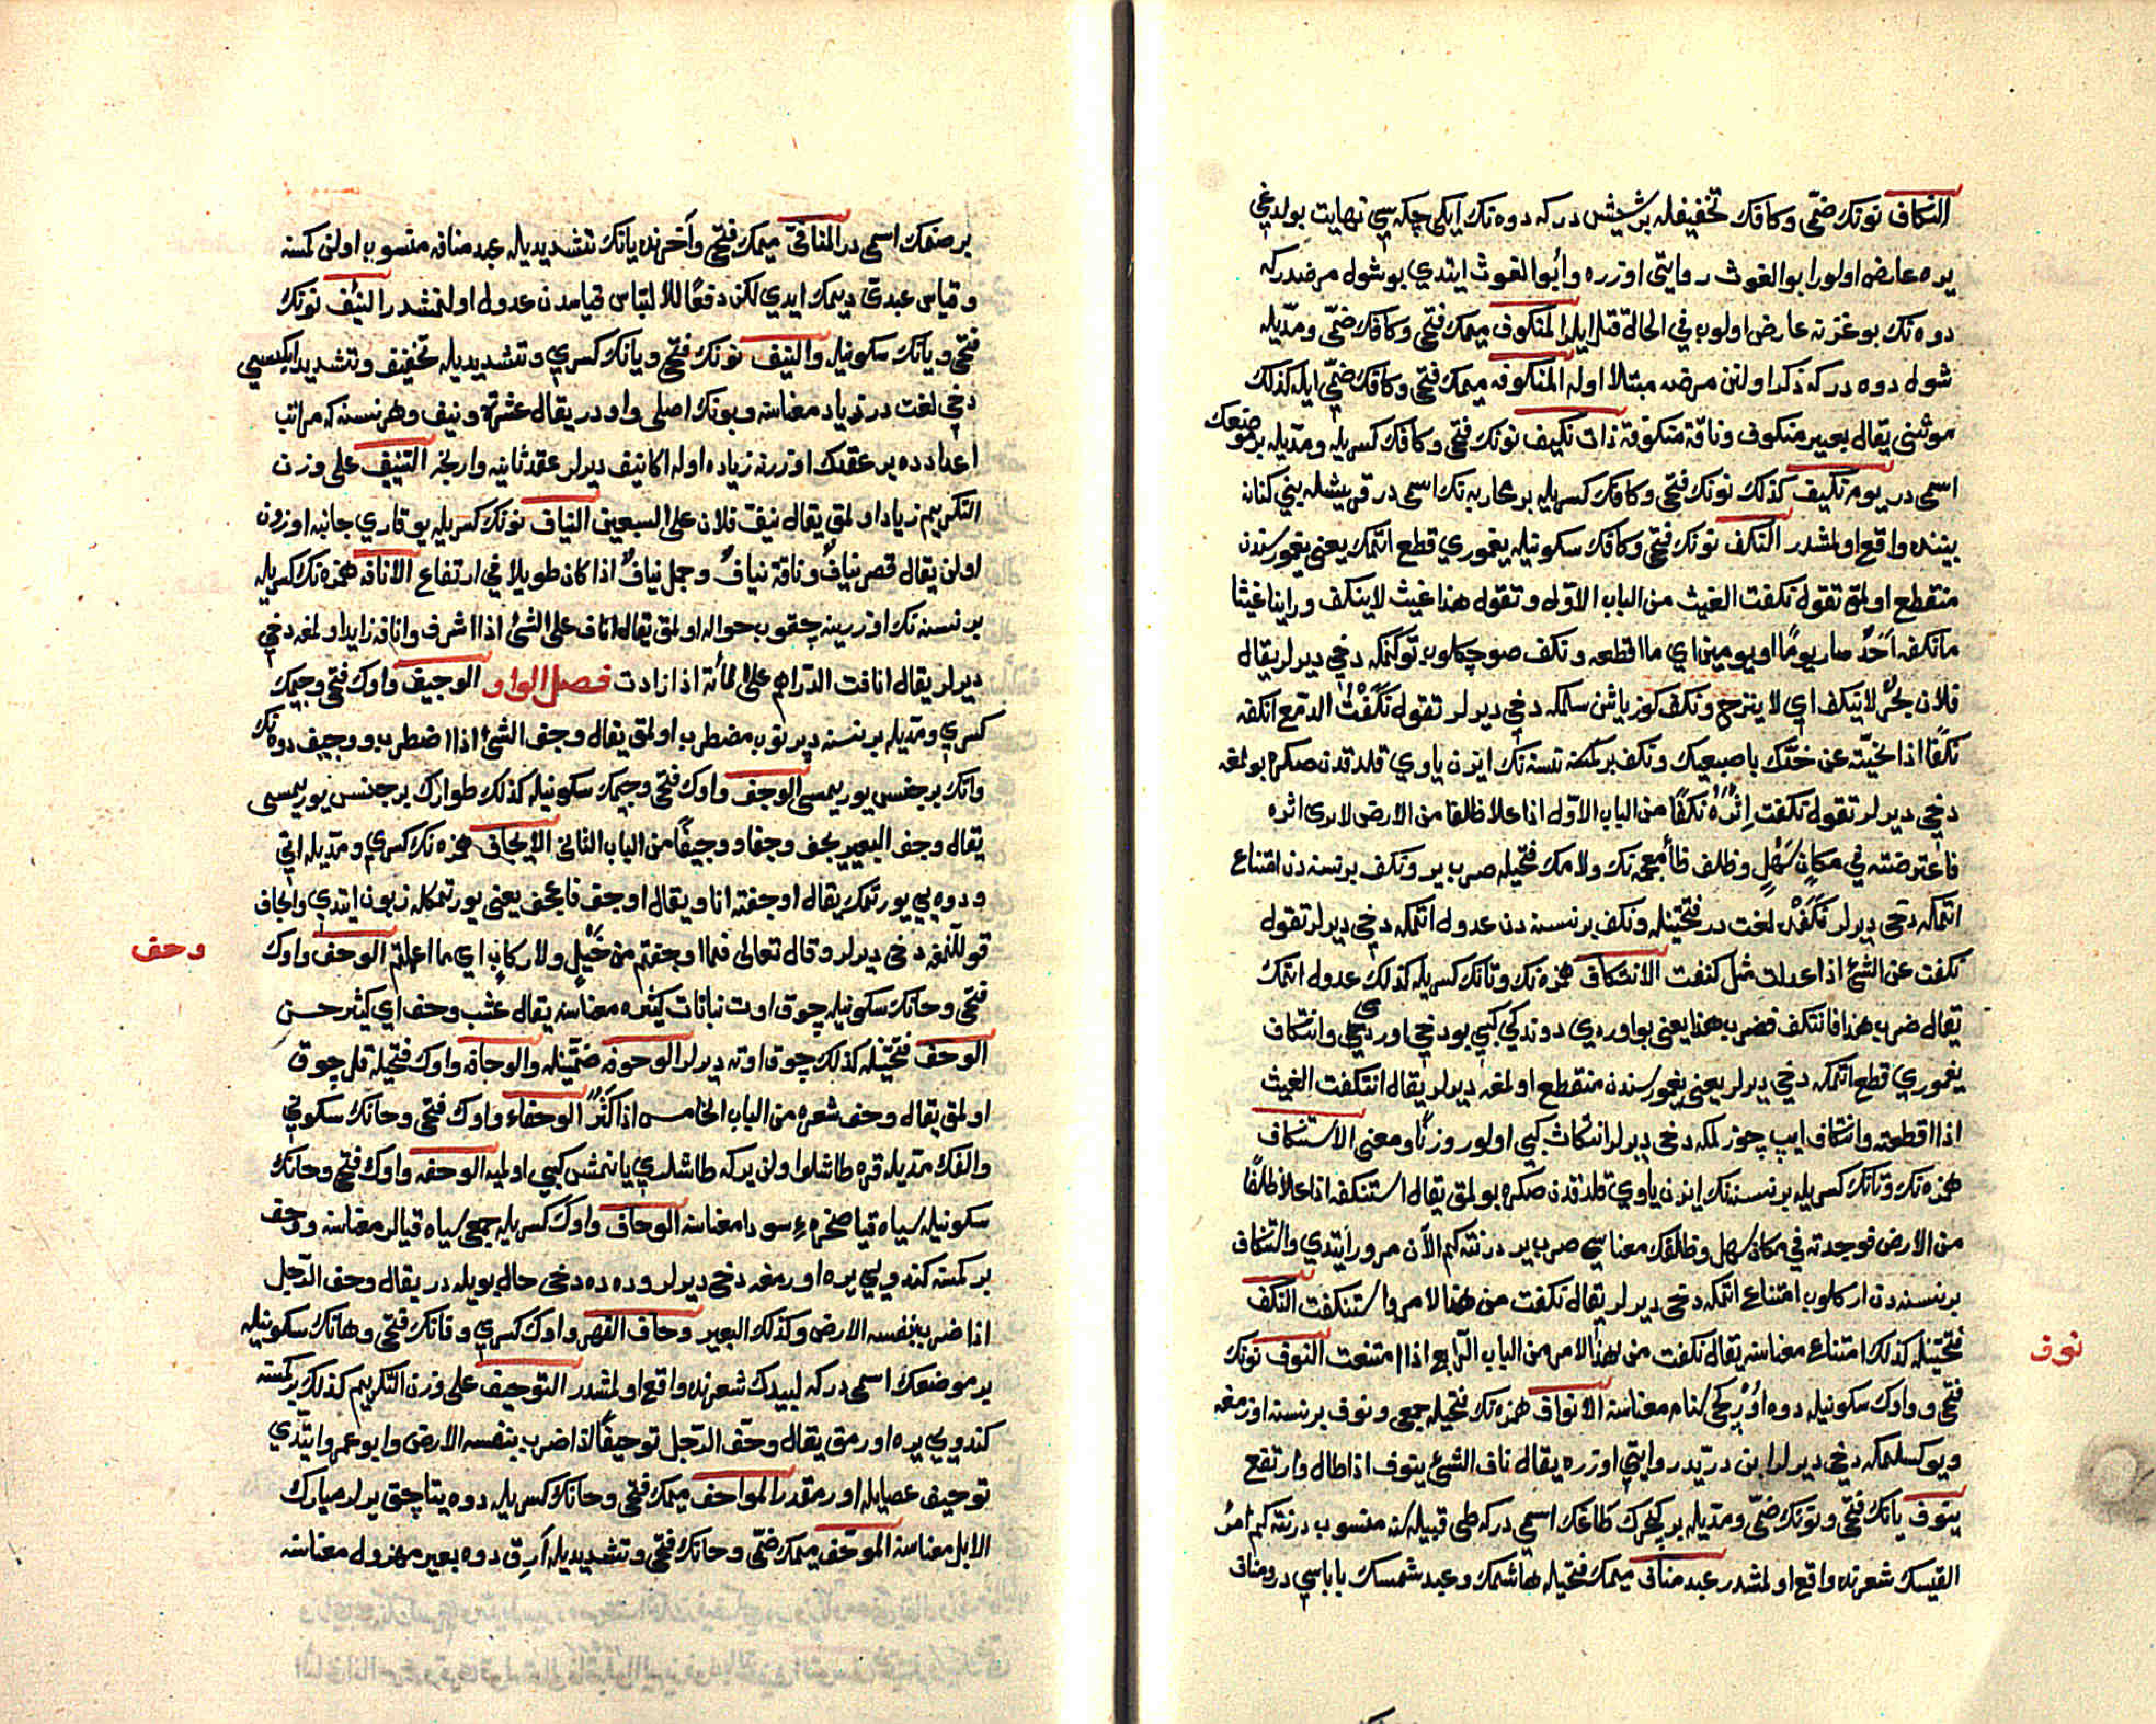 النكاف نونك ضمى وكافك تخفيفله بر شيشدر كه دوه نك ايكى چكه سى نهايت بولديغى
يره عارض اولور ابو الغوث روايتى اوزره وأبو الغوث ايتدي بو شول مرضدركه
دوه نك بوغزنه عارض اولوب في الحالة قتل ايلر المنكوف ميمك فتحى وكافك ضمى ومديله
شول دوه دركه ذكر اولنن مرضه مبتلا اوله المنكوفه ميمك فتحى وكافك ضمى ايله كذلك
موثنى يقال بعير منكوف وناقة منكوفة ذات نكيف نونك فتحى وكافك كسريله ومديله بر موضعك
اسمى در يوم نكيف كذلك نونك فتحى وكافك كسريله بر محاربه نك اسمى در قريشله بني كنانه
بيننده واقع اولمشدر النكف نونك فتحى وكافك سكونيله يغموري قطع اتمك يعنى يغمور سندن
منقطع اولمق تقول نكفت الغيث من الباب الاول وتقول هذا غيث لا ينكف وراينا غيثا
ما نكفه أحد سار يوما او يومين اي ما اقطعه ونكف صو چكلوب توكنمكه دخي ديرلر يقال
فلان بحر لا ينكف اي لا ينزح ونكف كوز ياشن سلمكه دخي ديرلر تقول نكفت الدمع انكفه
نكفا اذا نحيته عن خدك باصبعك ونكف بر كمسنه نسنه نك ايزن ياوي قلدقدن صكره بولمغه
دخي ديرلر تقول نكفت اثره نكفا من الباب الاول اذا علا ظلفا من الارض لا يرى اثره
فاعترضته في مكان سهل وظلف ظا معجمه نك ولامك فتحيله صرب ير ونكف بر نسنه دن امتناع
اتمكه دخي ديرلر نكفه لغت در فتحتينله ونكف بر نسنه دن عدول اتمكه دخي ديرلر تقول
نكفت عن الشئ اذا عدلت مثل كنفت الانتكاف همزه نك وتانك كسريله كذلك عدول اتمك
يقال ضرب هذا فانتكف فضرب هذا يعنى بو اوردي دوندي كبي بو دخي اوردي وانتكاف
يغموري قطع اتمكه دخي ديرلر يعنى يغمور سندن منقطع اولمغه ديرلر يقال انتكفت الغيث
اذا اقطعته وانتكاف ايپ چوزلمكه دخي ديرلر انتكاث كبي اولور وزنا ومعنى الاستنكاف
همزه نك وتانك كسريله بر نسنه نك ايزن ياوي قلدقدن صكره بولمق يقال استنكفه اذا علا ظلفا
من الارض فوجدته في مكان سهل وظلفك معناسى صرب ير در نته كيم الآن مرور ايتدي واستنكاف
بر نسنه دن ارلكنوب امتناع اتمكه دخي ديرلر يقال نكفت من هذا الامر واستنكفت النكف
فتحتينله كذلك امتناع معناسنه يقال نكفت من هذا الامر من الباب الرابع اذا امتنعت النوف نونك
نوف
فتحى وواوك سكونيله دوه اوركجى سنام معناسنه الانواف همزه نك فتحيله جمعى ونوف بر نسنه اوزنمغه
ويوكسلمكه دخي ديرلر ابن دريد روايتى اوزره يقال ناف الشئ ينوف اذا طال وارتفع
ينوف يانك فتحى ونونك ضمى ومديله بر طاغك اسمى دركه طى قبيله سنه منسوب در نته كيم امرؤ
القيسك شعرنده واقع اولمشدر عبد مناف ميمك فتحيله هاشمك وعبد شمسك باباسي در ومناف
بر صنمك اسمى در المنافى ميمك فتحى وآخرنده يانك تشديديله عبد منافه منسوب اولن كمسنه
وقياس عبدى ديمك ايدي لكن دفعا للالتباس قياسدن عدول اولنمشدر النيف نونك
فتحى ويانك سكونيله والنيف نونك فتحى ويانك كسري وتشديديله تخفيف وتشديد ايكيسى
دخي لغت در زياد معناسنه وبونك اصلى واودر يقال عشرة ونيف وهر نسنه كه مراتب
اعدادده بر عقدك اوزرنه زياده اوله اكا نيف ديرلر عقد ثانيه وارنجه التنييف على وزن
التكريم زياد اولمق يقال نيف فلان على السبعين النياف نونك كسريله يوقاري جانبه اوزون
اولن يقال قصر نياف وناقة نياف وجمل نياف اذا كان طويلا في ارتفاع الانافه همزه نك كسريله
بر نسنه نك اوزرينه چقوب حواله اولمق يقال اناف على الشئ اذا اشرف وانافه زايد اولمغه دخي
ديرلر يقال انافت الدراهم على المائة اذا زادت فصل الواو الوجيف واوك فتحى وجيمك
كسري ومديله بر نسنه ديرنوب مضطرب اولمق يقال وجف الشئ اذا اضطرب ووجيف دوه نك
واتك بر جنس يوريمسى الوجف واوك فتحى وجيمك سكونيله كذلك طوارك بر جنس يوريمسى
يقال وجف البعير يجف وجفا ووجيفا من الباب الثانى الايجاف همزه نك كسري ومديله اتي
ودوه يي يورتمك يقال اوجفته انا ويقال اوجف فاعجف يعنى يورتمكله زبون ايتدي وايجاف
قوللنمغه دخى ديرلر وقال تعالى فما اوجفتم من خيل ولا ركاب اي ما اعملتم الوحف واوك
وحف
فتحى وحانك سكونيله چوق اوت نبانات كثيره معناسنه يقال عشب وحف اي كثير حسن
الوحف فتحتينله كذلك چوق اوته ديرلر الوحوفه ضمتينله والوحافه واوك فتحيله قل چوق
اولمق يقال وحف شعره من الباب الخامس اذا كثر الوحفاء واوك فتحى وحانك سكوني
والفك مديله قره طاشلو اولن يركه طاشلري يانمش كبي اوليه الوحفه واوك فتحى وحانك
سكونيله سياه قيا صخرهء سودا معناسنه الوحاف واوك كسريله جمعى سياه قيالر معناسنه ووحف
بر كمسنه كندويي يره اورمغه دخى ديرلر ودوه ده دخى حال بويله در يقال وحف الرجل
اذا ضرب بنفسه الارض وكذلك البعير وحاف القهر واوك كسري وقافك فتحى وهانك سكونيله
بر موضعك اسمى دركه لبيدك شعرنده واقع اولمشدر التوحيف على وزن التكريم كذلك بر كمسنه
كندويي يره اورمق يقال وحف الرجل توحيفا اذا ضرب بنفسه الارض وابو عمرو ايتدي
توحيف عصايله اورمقدر المواحف ميمك فتحى وحانك كسريله دوه يتاجق يرلر مبارك
الابل معناسنه الموحف ميمك ضمى وحانك فتحى وتشديديله آرق دوه بعير مهزول معناسنه